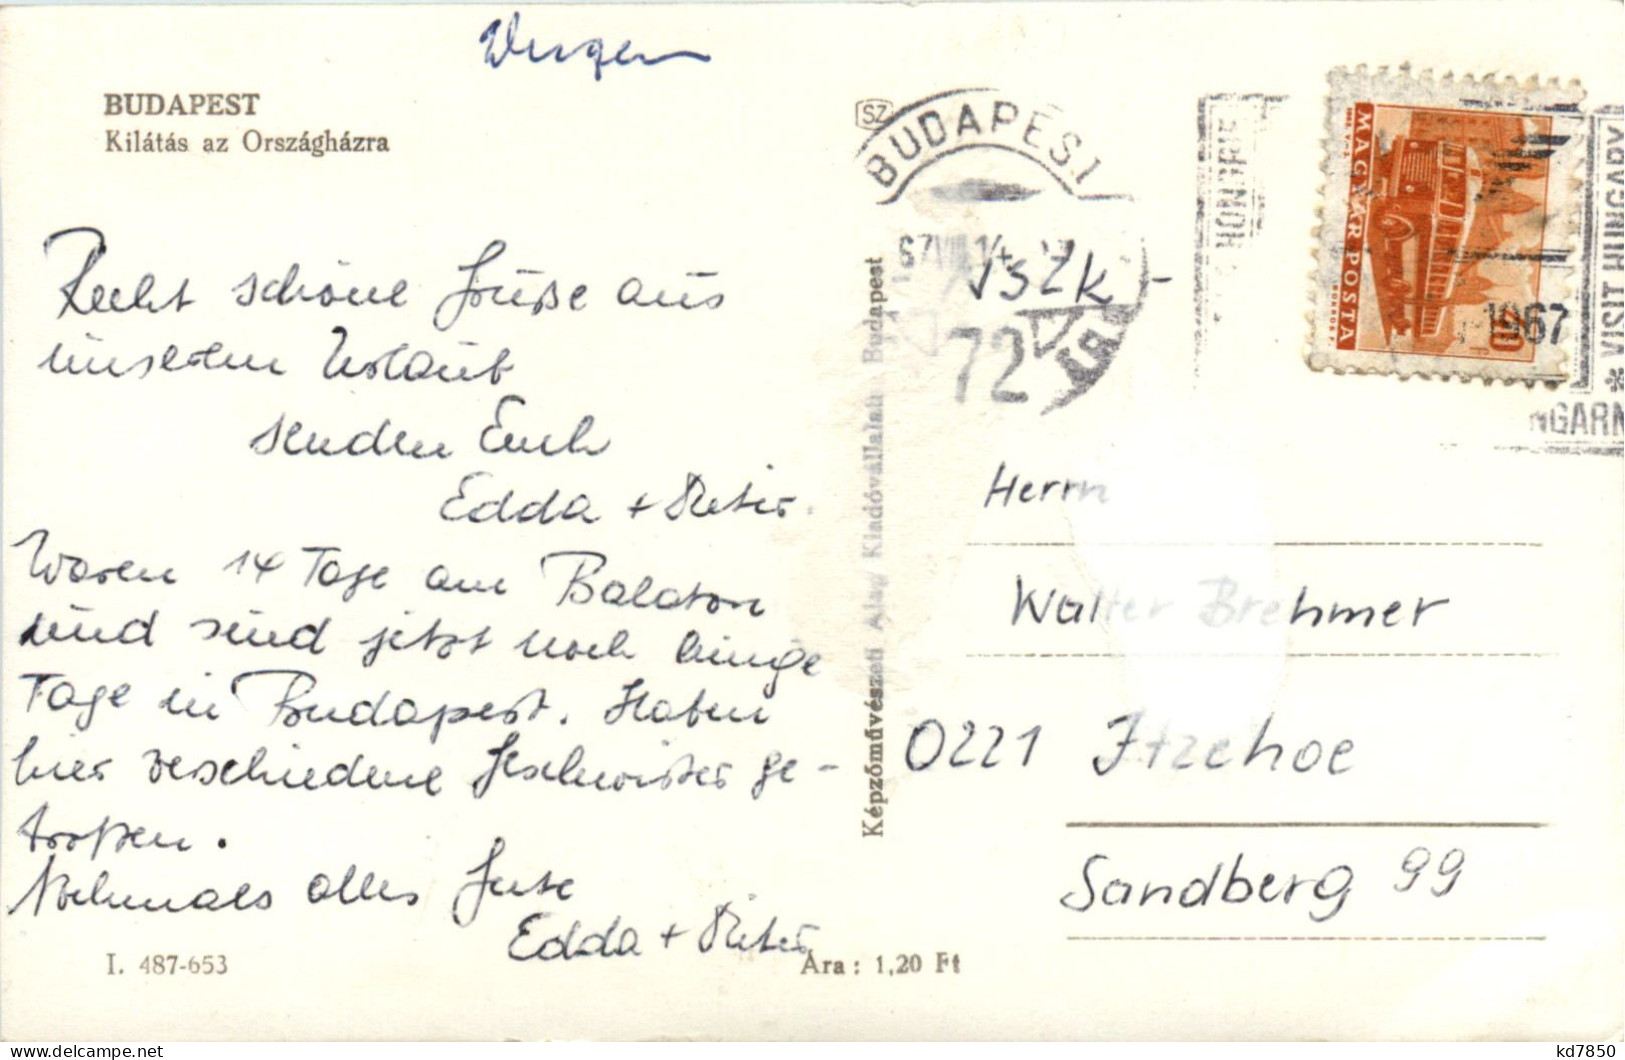 BUDAPEST
Kilátás az Országházra
Recht schöne Grüße aus
unserem Urlaub
senden Euch
Edda + Dieter.
Waren 14 Tage am Balaton
und sind jetzt noch einige
Tage in Budapest. Haben
hier verschiedene Geschwister ge-
troffen.
Nochmals alles Gute
Edda + Dieter
I. 487-653
Ára: 1,20 Ft
Képzőművészeti Alap Kiadóvállalata Budapest
SZ
BUDAPEST
67 VIII 14
72
MAGYAR POSTA
1967
HONGRIE
* VISIT HUNGARY
NGARN
Herrn
Walter Brehmer
0221 Itzehoe
Sandberg 99
kd7850